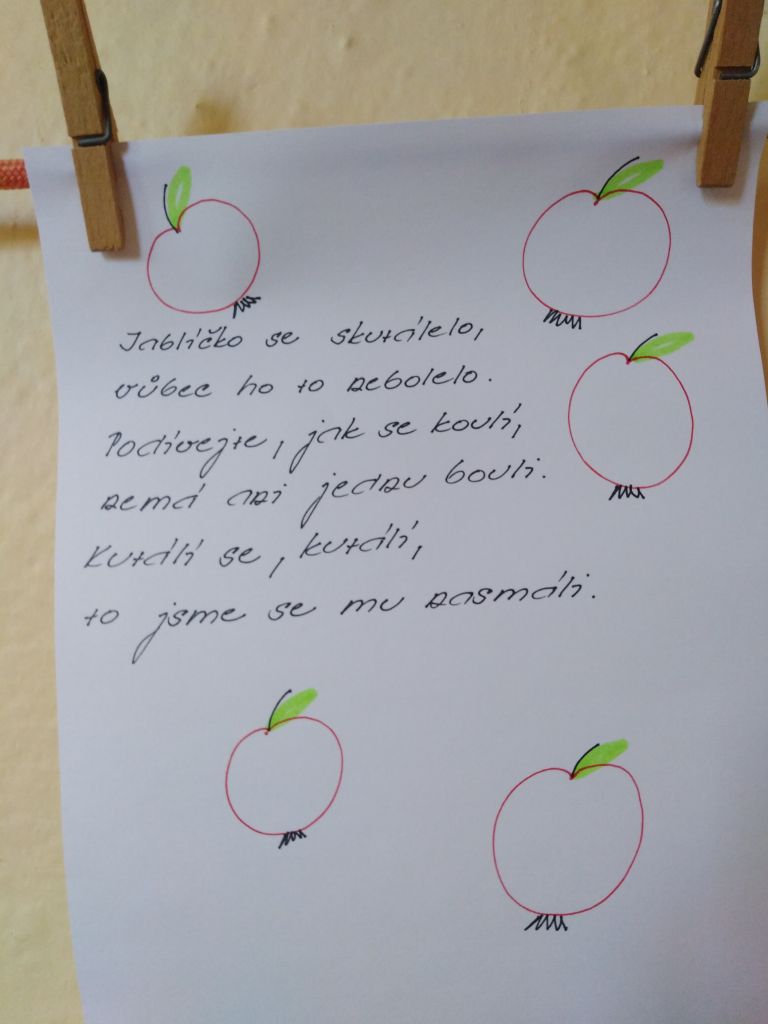 Jablíčko se skutálelo,
vůbec ho to nebolelo.
Podívejte, jak se koulí,
nemá ani jednu bouli.
Kutálí se, kutálí,
to jsme se mu nasmáli.